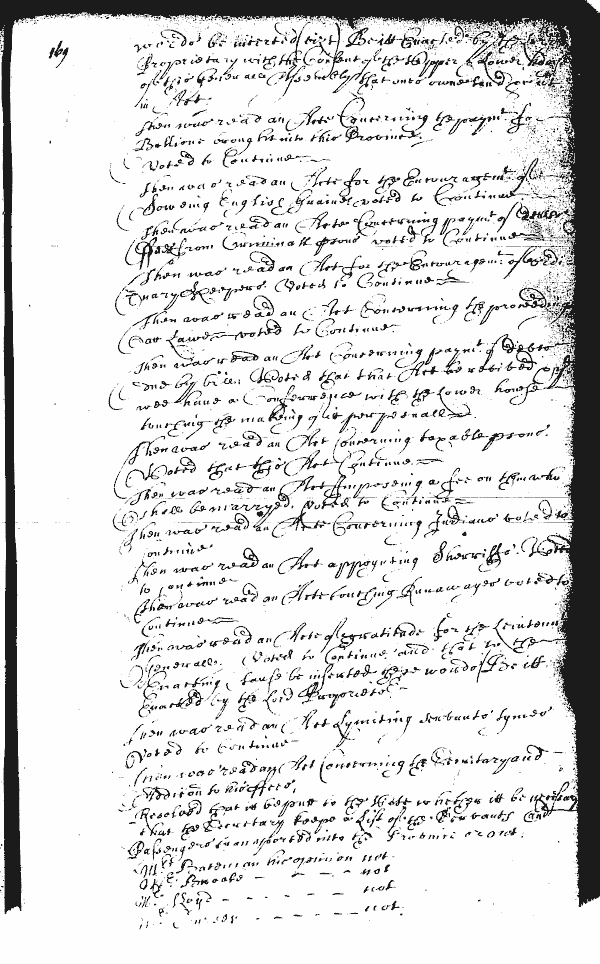 169
words be inserted (vizt) Be itt Enacted by the Lord
Proprietary with the Consent of the Upper & Lower house
of this Generall Assembly that
in Act
Then was read an Acte Concerning the paymt
Bullione brought into this Province
Voted to Continue
Then was read an Acte for the Encouragemt of
Soweing English Graine voted to Continue
Then was read an Acte Concerning paymt of
Fees from Criminall psons voted to Continue
Then was read an Act for the Encouragemt of ordi
nary Keepers Voted to Continue
Then was read an Act Concerning the proceedings
att Lawe voted to Continue
Then was read an Act Concerning paymt of debts
due by bill. Voted that that Act be revived
wee have a Conferrence with the Lower house
touching the makeing of it perpetuall
Then was read an Act Concerning taxable psons.
Voted that this Act Continue
Then was read an Act Imposeing a fee on them who
shall be marryed. voted to Continue
Then was read an Acte Concerning Indians voted to
Continue
Then was read an Act appoynting Sherriffs. Voted
to Continue
Then was read an Acte touching Runawayes voted to
Continue
Then was read an Acte of gratitude for the Leiutennt
Generall. Voted to Continue and that to the
Enacting Clause be inserted these words Be itt
Enacted by the Lord Proprietor
Then was read an Act Lymiting Servants tymes
Voted to Continue
Then was read an Act Concerning the Secretary and
Addicon to his ffees,
Resolved that itt be putt to the Vote whether itt be necessary
that the Secretary keepe a List of the Servants and
Passengers transported into the Province or not.
Mr Bateman his opinion not.
Mr Brooke - - - - not
Mr Lloyd - - - - - not
- - - - not.